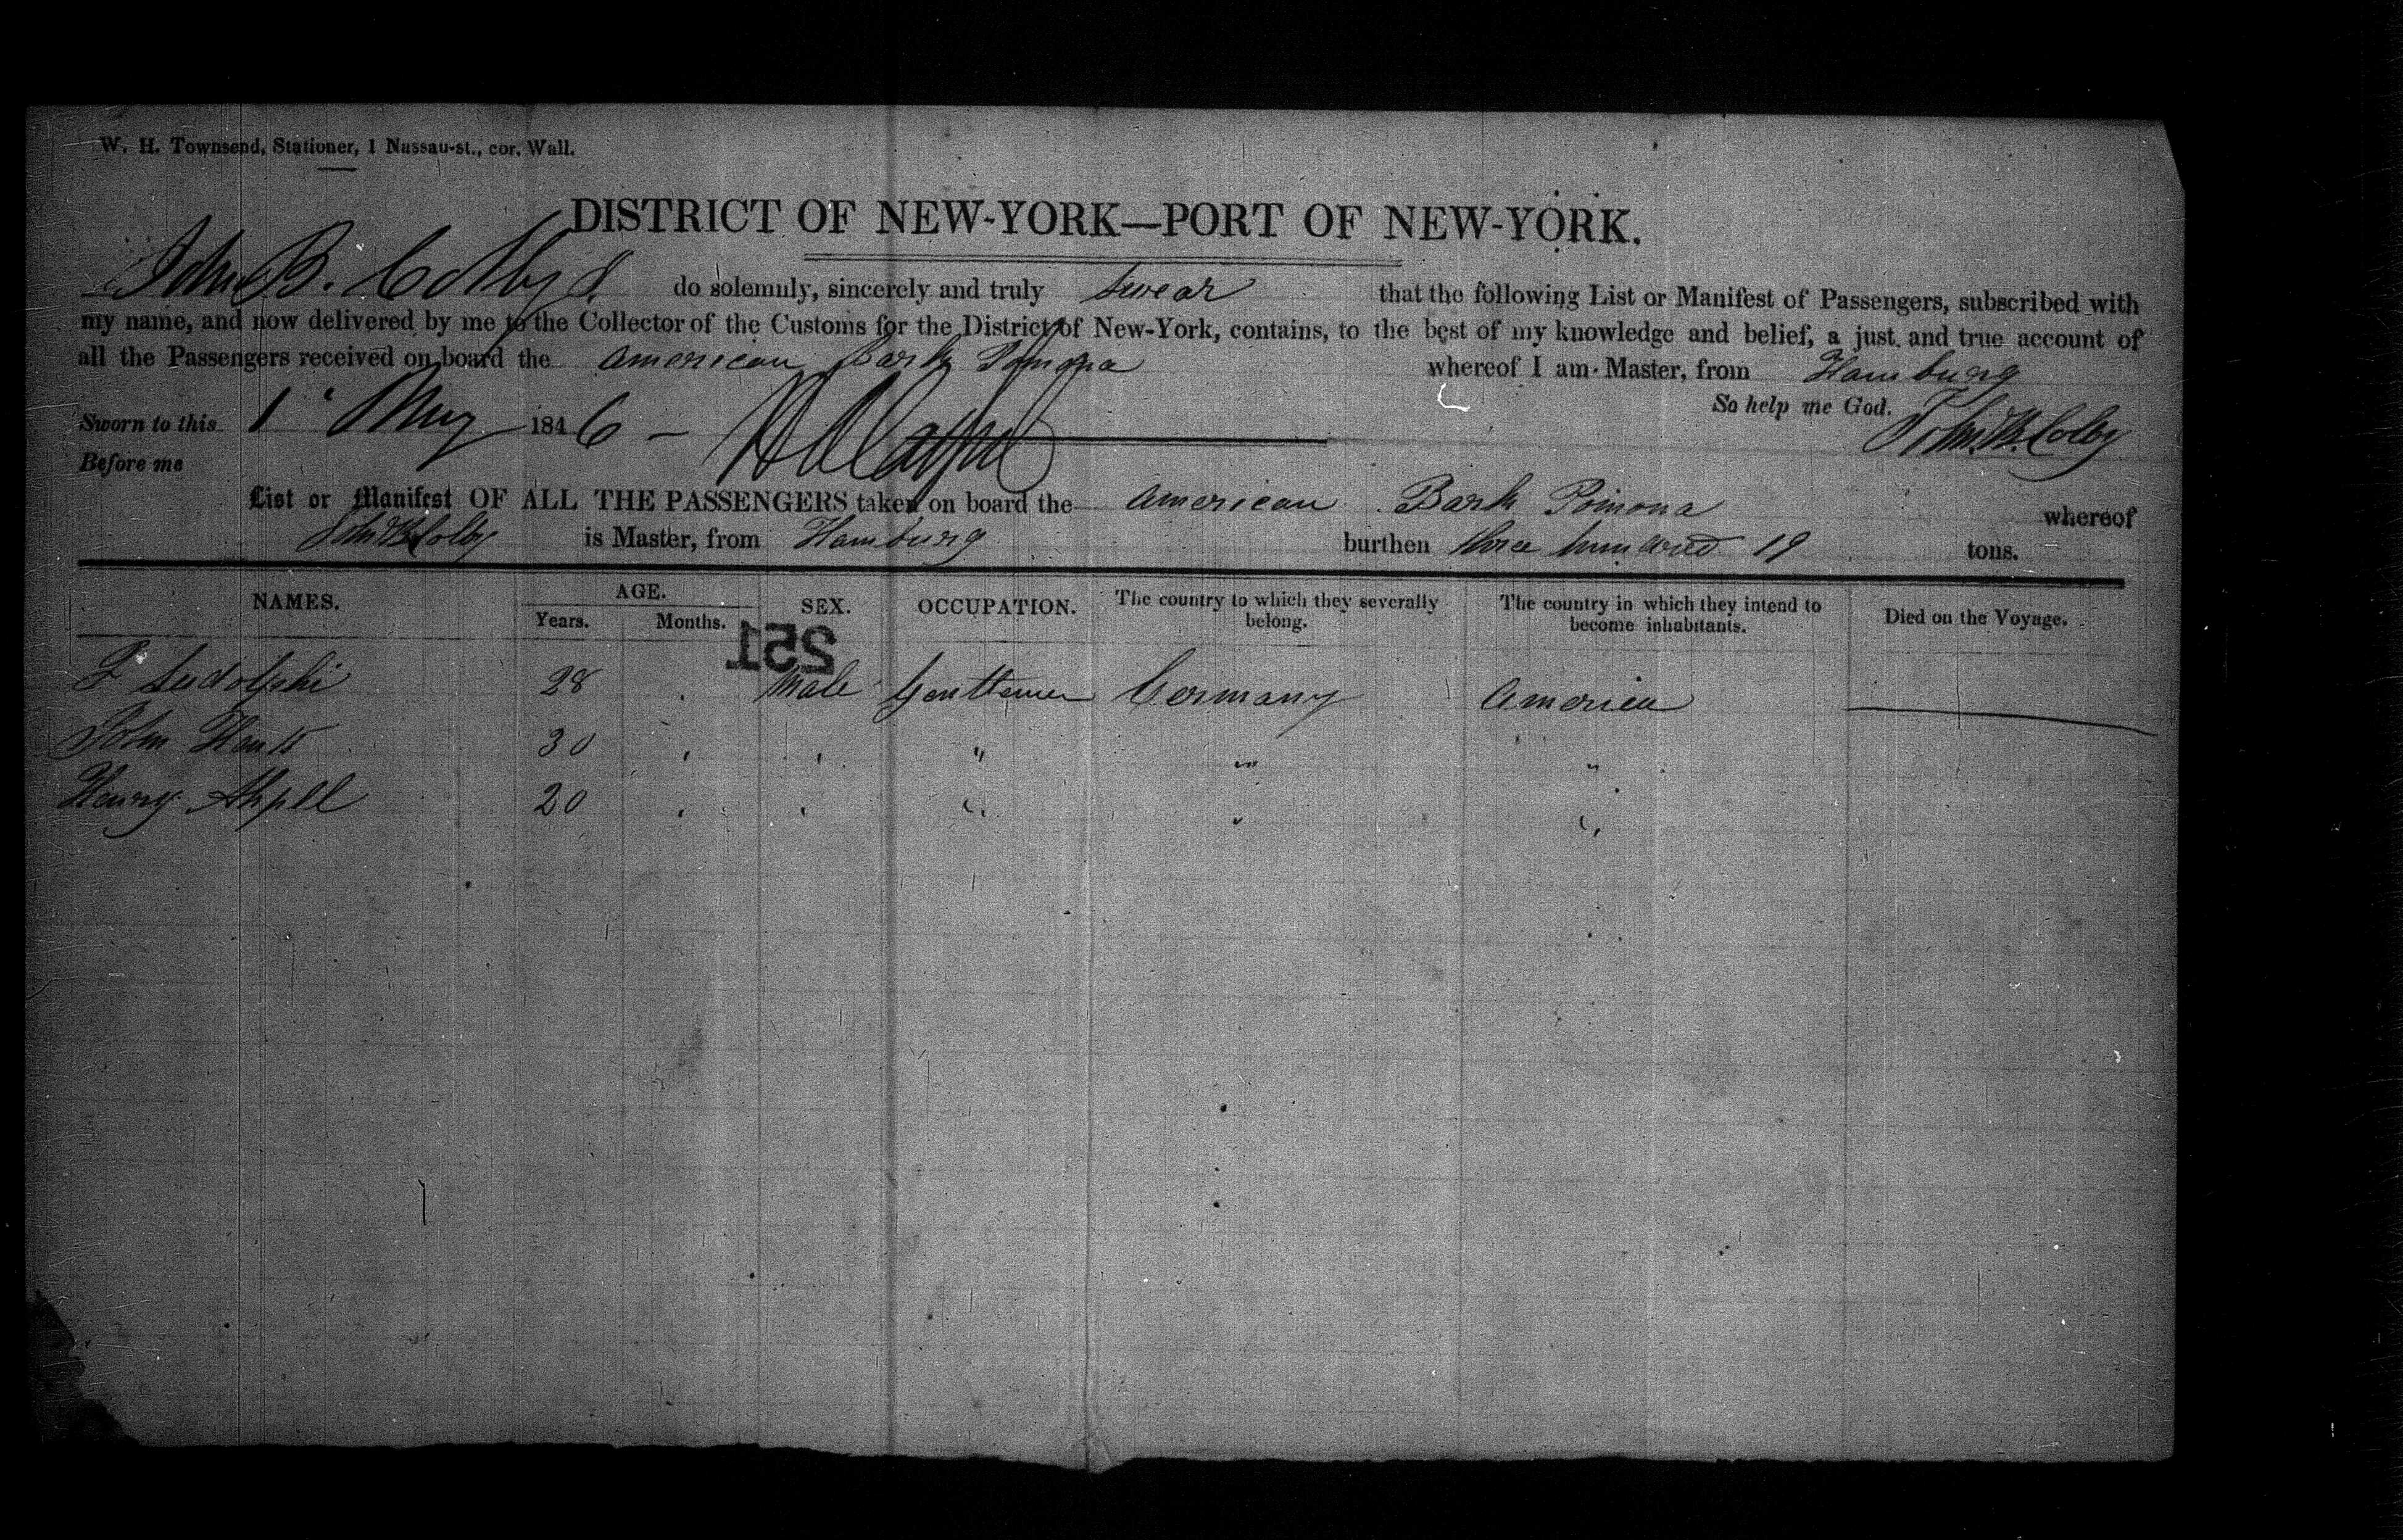 W. H. Townsend, Stationer, 1 Nassau-st., cor. Wall.
DISTRICT OF NEW-YORK—PORT OF NEW-YORK.
I John B. Colby do solemnly, sincerely and truly swear that the following List or Manifest of Passengers, subscribed with
my name, and now delivered by me to the Collector of the Customs for the District of New-York, contains, to the best of my knowledge and belief, a just and true account of
all the Passengers received on board the American Bark Pomona whereof I am Master, from Hamburg
So help me God.
Sworn to this 1 May 1846 — John B. Colby
Before me
List or Manifest OF ALL THE PASSENGERS taken on board the American Bark Pomona whereof
John B Colby is Master, from Hamburg burthen three hundred 19 tons.
NAMES. AGE. SEX. OCCUPATION. The country to which they severally belong. The country in which they intend to become inhabitants. Died on the Voyage.
Years. Months.
251
Ludolphi 28 Male Gentlemen Germany America
John 30 " " "
Henry Appell 20 " " "